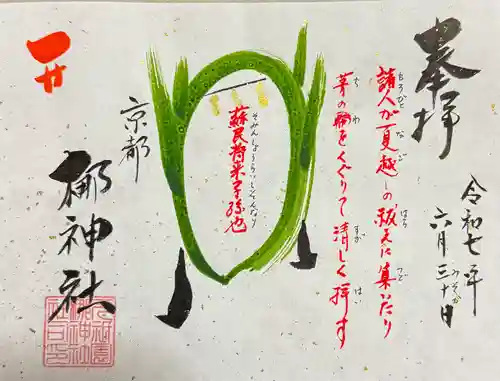 奉拝
令和七年
六月三十日
みそか
諸人が夏越しの祓えに集いたり
もろびと なごし はら つど
茅の輪をくぐりて清しく拝す
ち わ すが はい
蘇民将来子孫也
そみんしょうらいしそんなり
京都
梛神社